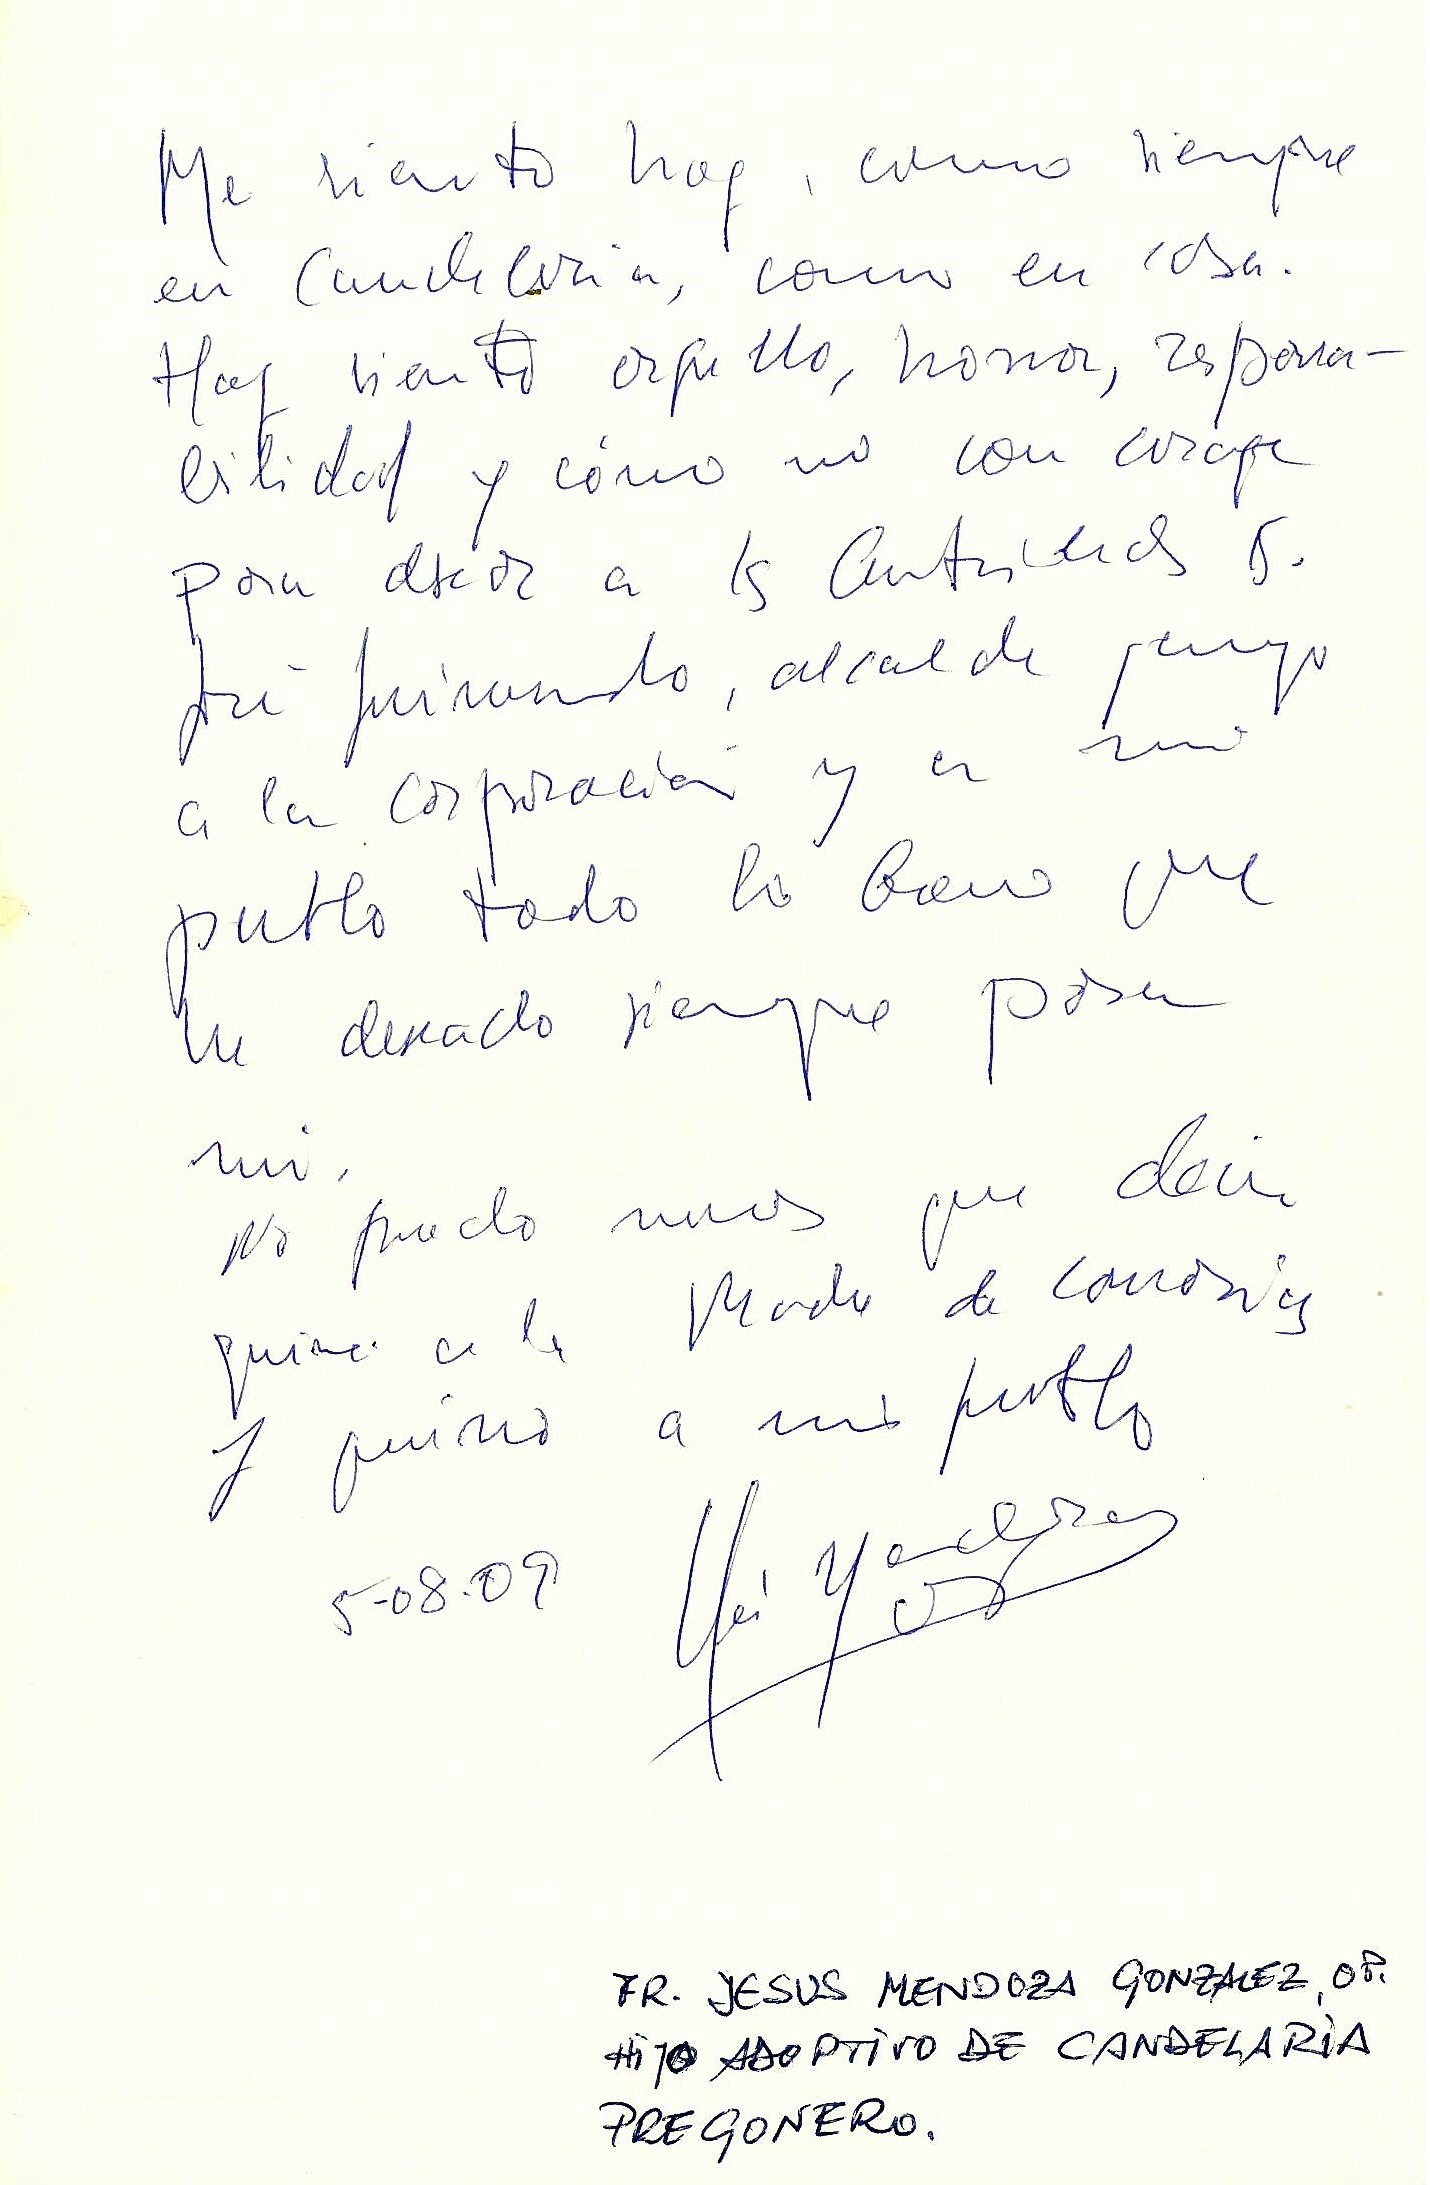 Me siento hoy, como siempre
en Candelaria, como en casa.
Hoy siento orgullo, honor, responsa-
bilidad y cómo no con coraje
para desear a las Autoridades D.
José Gumersindo, alcalde
a la corporación y a mi
pueblo todo lo bueno que
he deseado siempre para
mi.
No puedo menos que decir
quise a la Madre de Canarias
y quiero a mi pueblo
5-08-09
FR. JESUS MENDOZA GONZALEZ, OP.
HiJO ADOPTiVO DE CANDELARiA
PREGONERO.